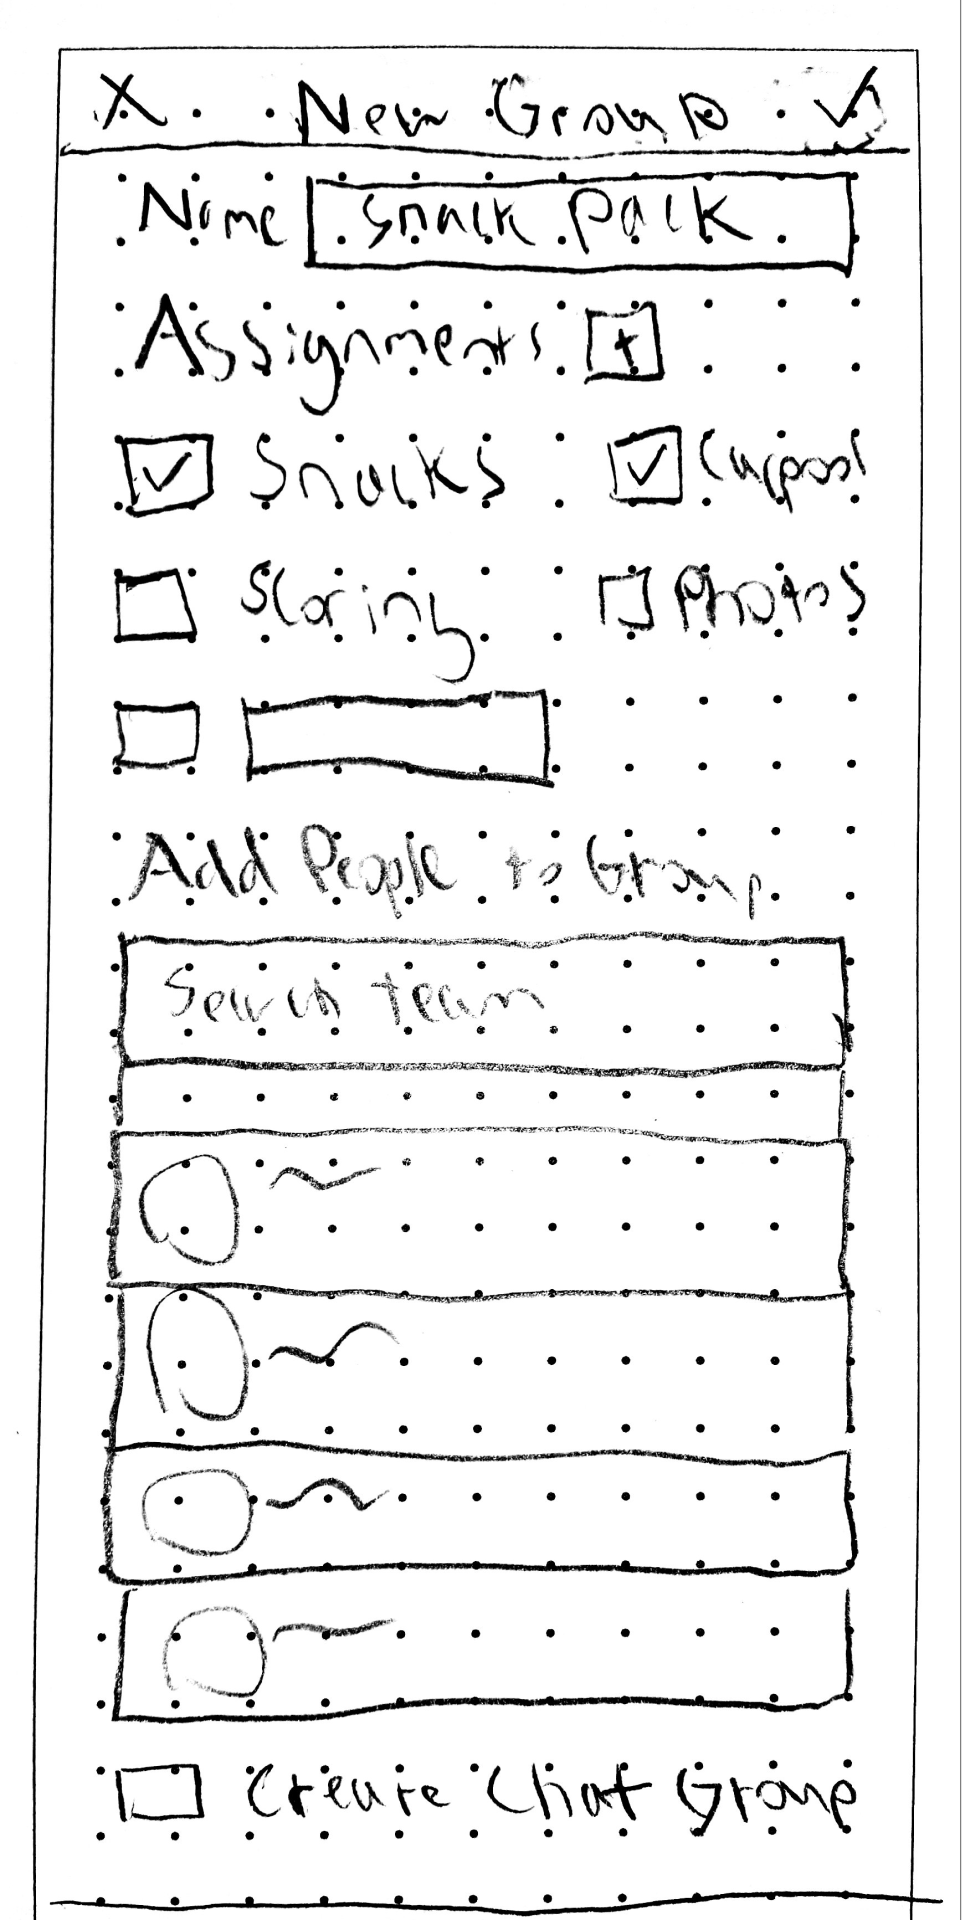 X New Group ✓
Name Snack Pack
Assignments +
Snacks Carpool
Scoring Photos
Add People to Group
Search team
Create Chat Group